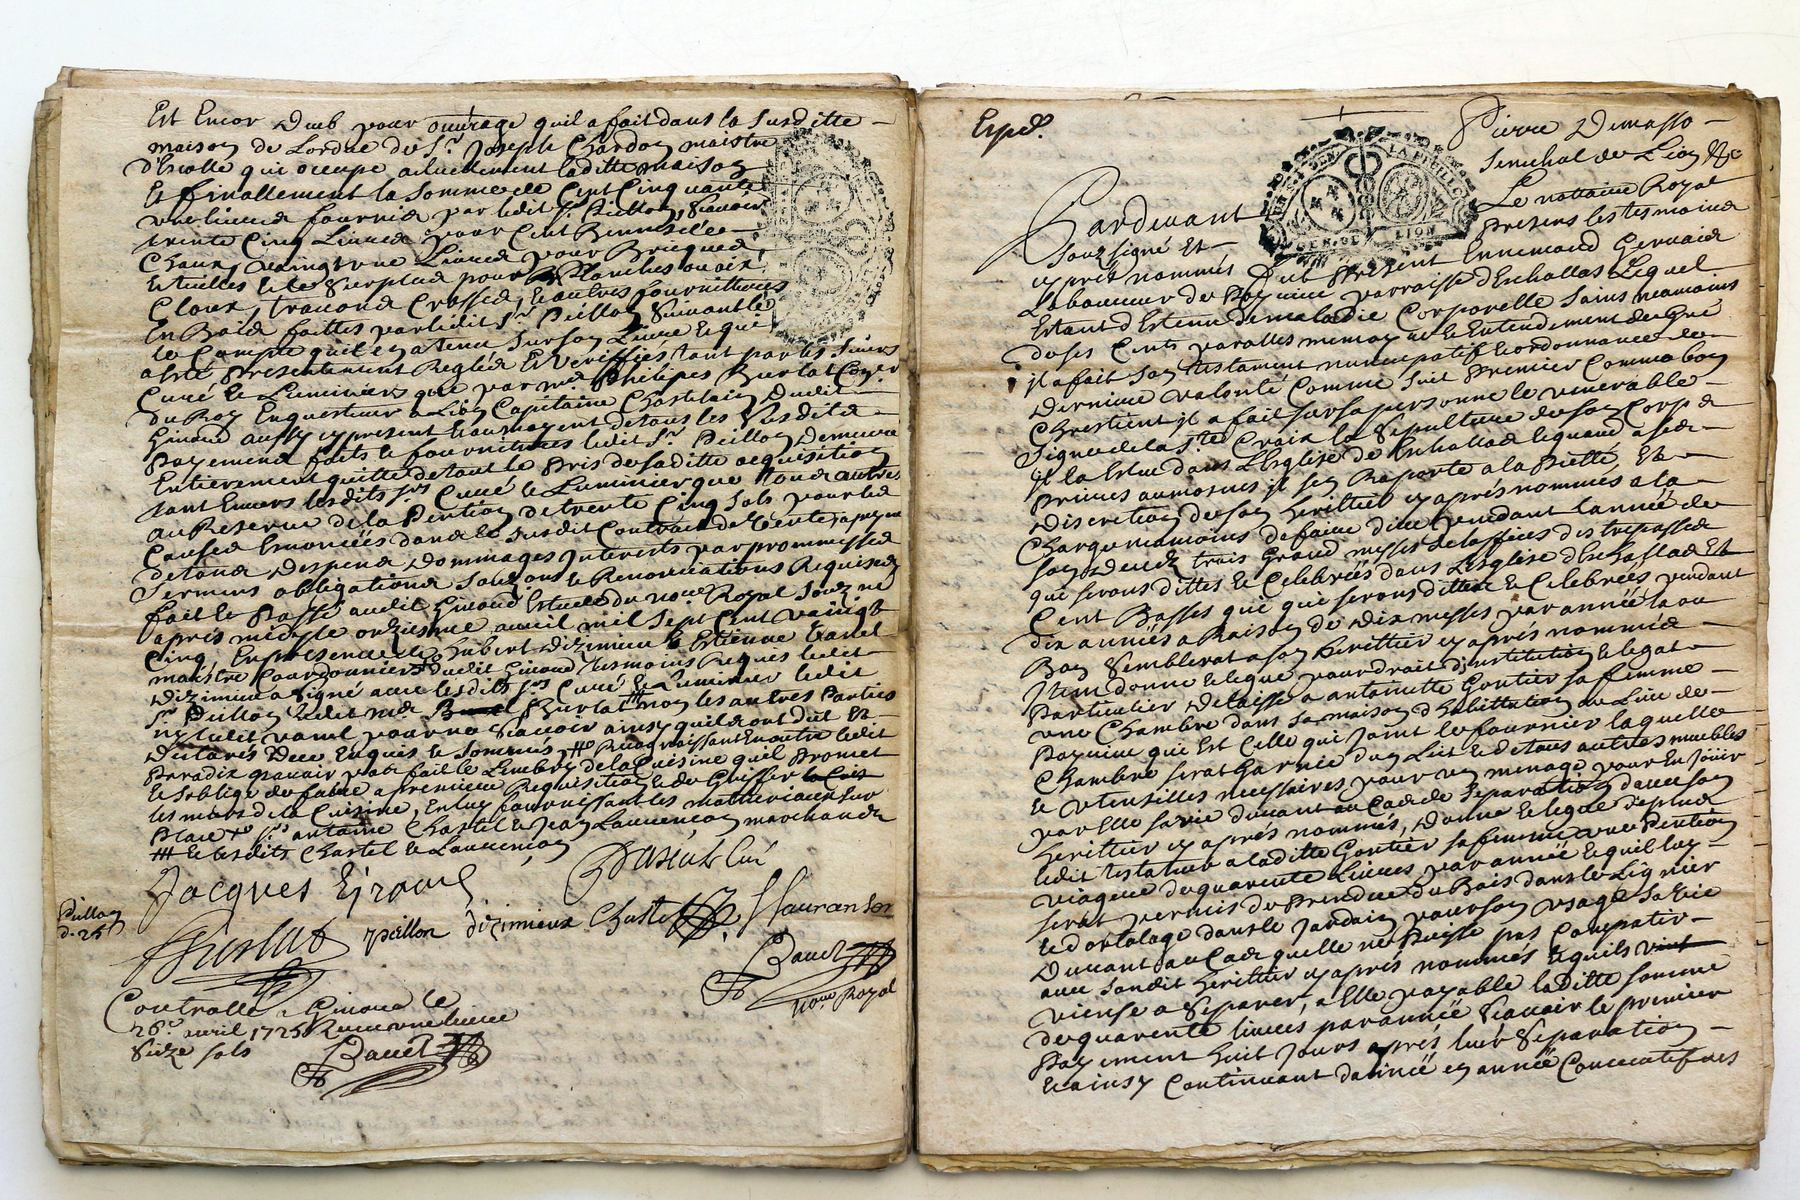 Est Encor Deub pour ouvrage quil a fait dans la susditte
maison de Lordre du Sr. Joseph Chardon maistre
d'Escolle qui occupe actuellement laditte maison
Et finallement la somme de Cent Cinquante
une livres fournies par ledit Sr. Peillon, Scavoir
trente Cinq Livres pour Cent Bennes de
Chaux, vaingt une Livres pour Bricques
et tuilles et le surplus pour Planches
Cloux, travons Crosses, et autres fournitures
En Bois faittes par ledit Sr. Peillon Suivant le
Compte quil en a tenu sur son Livre et qui
a esté presentement Reglés et veriffiés tant par les sieurs
Curé et Luminier que par mre Philipes Burlat
du Roy Enquesteur a Lion Capitaine Chastelain dudit
Givors aussy cy present et au moyent de tous les susdits
payements faits et fournitures ledit Sr. Peillon demeure
Entierement quitte de tout le pris de saditte acquisition
tant Envers lesdits srs Curé et Luminier que tous autres
au Reserve de la Pention de trente Cinq sols pour les
Causes Enoncées dans le susdit Contrait de vente a peyne
de tous despens dommages Interests par prommesses
sermens obligations Renonciations Requises
fait et Passé audit Givors Estude du nore Royal souz né
apres midy le onziesme avril mil sept Cent vaingt
Cinq En presence de hubert dizimieu et Estienne varel
maistre Cordonniers dudit Givors tesmoins Requis ledit
dizimieu a signé avec lesdits srs Curé et Luminier ledit
Sr. Peillon ledit mre Burlat non les autres Parties
ny ledit varel pour ne scavoir ainsy quil ont dit Et
declarés Deue Enquis et sommés Recognoissant En outre ledit
avoir fait le de la Cuisine quil Promet
et soblige de faire a premiere Requisition et de
les murs de la Cuisine, En luy fournissant les materiaux sur
Place srs antoine Chastel et Jean Laurençon marchands
et lesdits Chastel et Laurençon
Jacques Eyraud
Peillon
d. 25
Burlat peillon dizimieux Chastel
nore Royal
Controllé a Givors le
26e avril 1725 Receu une livre
Seize sols
Expé.
Pierre
Senechal de Lion &c
Pardevant Le nottaire Royal
Souz signé Et Presens les tesmoins
cy après nommés fut Present Ennemond Gervais
Laboureur de parroisse d'Eschallas Lequel
Estant detenu de maladie Corporelle Sains neamoins
de ses Cents parolles memoire et Entendement de Gré
jl a fait son testament nuncupatif et ordonnance de
derniere volonté Comme suit Premier Comme bon
Chrestient jl a fait sur sa personne le venerable
Signe de la Ste Croix la Sepulture de son Corps
jl la Esleu dans L'Esglise de Eschallas et quand a ses
Prieres aumosnes jl sen Raporte a la Piette, Et
discretion de son heritier cy aprés nommés a la
Charge neamoins de faire dire pendant l'année de
son deuil trois Grand messes de loffices des trespasses
que serons dittes et Celebreés dans L'Esglise d'Eschallas Et
Cent Basses qui que serons dittes et Celebreés pendant
dix années a Raison de dix messes par année la ou
Bon Semblerat a son heritier cy aprés nommés
Item donne et legue par droit d'institution et legat
Particulier delaisse a antoinette Gontier sa femme
une Chambre dans sa maison d'habittation au Lieu de
qui est celle qui joint le fournier laquelle
Chambre serat Garnie du Lict et de tous autres meubles
et Utensilles necessaires pour un menage pour En jouir
par Elle sa vie durant au Cas de Separation d'avec son
heritier cy aprés nommés, donne et legue de plus
ledit testateur a laditte Gontier sa femme une Pention
viagere de quarente Livres par année et quil luy
serat permis de Prendre du Bois dans le Lignier
et dortolage dans le Jardain pour son usage sa vie
Durant au Cas quelle ne Puisse pas Compatir
avec sondit heritier cy aprés nommés et quils
viense a separer, a Elle payable laditte somme
de quarente livres par année Scavoir le premier
Payement huit Jours aprés leur Separation
et ainsy Continuant dannée en année Consecutifves